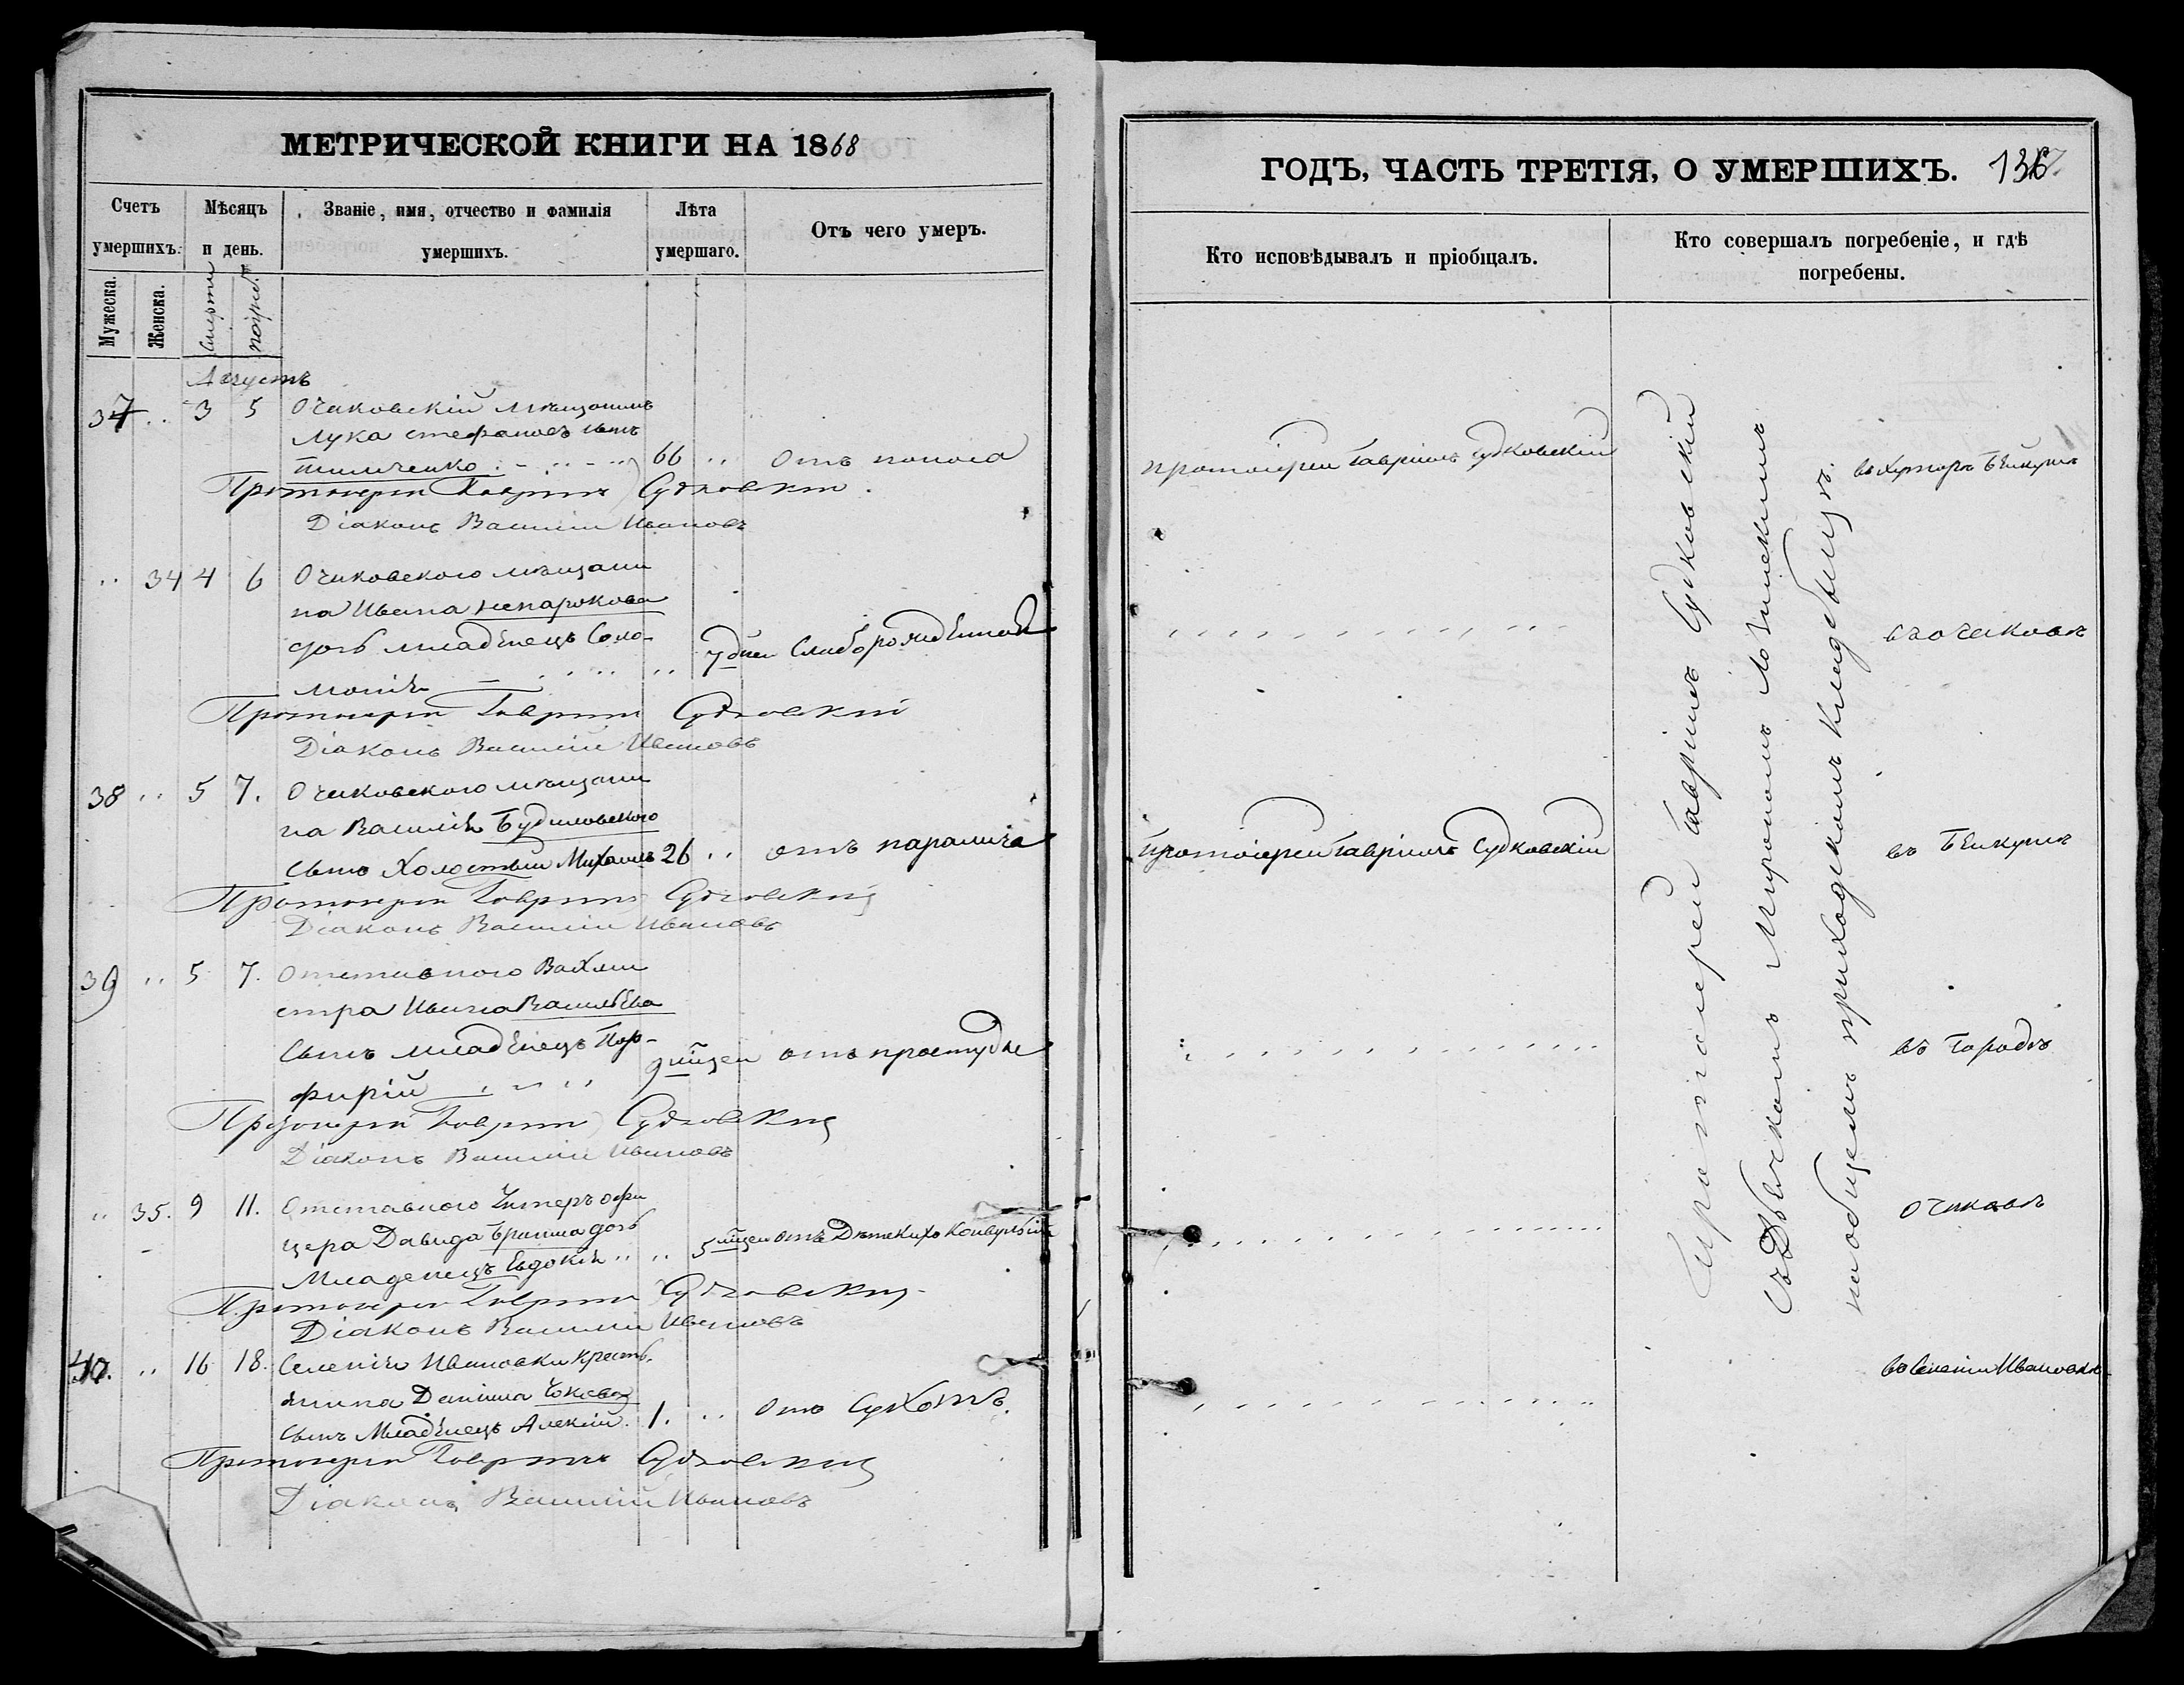 МЕТРИЧЕСКОЙ КНИГИ НА 1868
Счетъ умершихъ.
Мѣсяцъ и день.
Званіе, имя, отчество и фамилія умершихъ.
Лѣта умершаго.
Отъ чего умеръ.
Мужеска.
Женска.
смерти
погреб.
Августъ
37 .. 3 5 Очаковскій мѣщанинъ
Лука Стефановъ сынъ
Тимченко 66 .. Отъ поноса
Протоіерей Гавріилъ Судковскій.
Діаконъ Василій Ивановъ
.. 34 4 6 Очаковского мѣщани
на Ивана Непарокова
дочь младенецъ Соло-
монія .. 7 дней Слаборожденная
Протоіерей Гавріилъ Судковскій
Діаконъ Василій Ивановъ
38 .. 5 7. Очаковского мѣщани
на Василія Будиловского
сынъ Холостый Михаилъ 26 .. отъ паралича
Протоіерей Гавріилъ Судковскій
Діаконъ Василій Ивановъ
39 .. 5 7. Отставного Вахми
стра Ивана Васильева
сынъ младенецъ Пор-
фирій 9 мѣсяцей отъ простуды
Протоіерей Гавріилъ Судковскій
Діаконъ Василій Ивановъ
.. 35. 9 11. Отставного Унтеръ офи
цера Давида дочь
Младенецъ Евдокія .. 5 мѣсяцей отъ Дѣтскихъ Конвульсій
Протоіерей Гавріилъ Судковскій
Діаконъ Василій Ивановъ
40. .. 16 18. Селенія Ивановки Кресть.
янина Даніила
сынъ Младенецъ Алексій. 1. .. Отъ Сухотъ.
Протоіерей Гавріилъ Судковскій
Діаконъ Василій Ивановъ
ГОДЪ, ЧАСТЬ ТРЕТІЯ, О УМЕРШИХЪ.
Кто исповѣдывалъ и пріобщалъ.
Кто совершалъ погребеніе, и гдѣ погребены.
протоіерей Гавріилъ Судковскій
въ хуторѣ Бейкушѣ
въ Очаковѣ
Протоіерей Гавріилъ Судковскій
въ Бейкушѣ
въ городѣ
Очаковѣ
въ Селеніи Ивановкѣ
протоіерей Гавріилъ Судковскій
съ Дьячкомъ Мирономъ Лотинскимъ
на общемъ приходскомъ кладбищѣ.